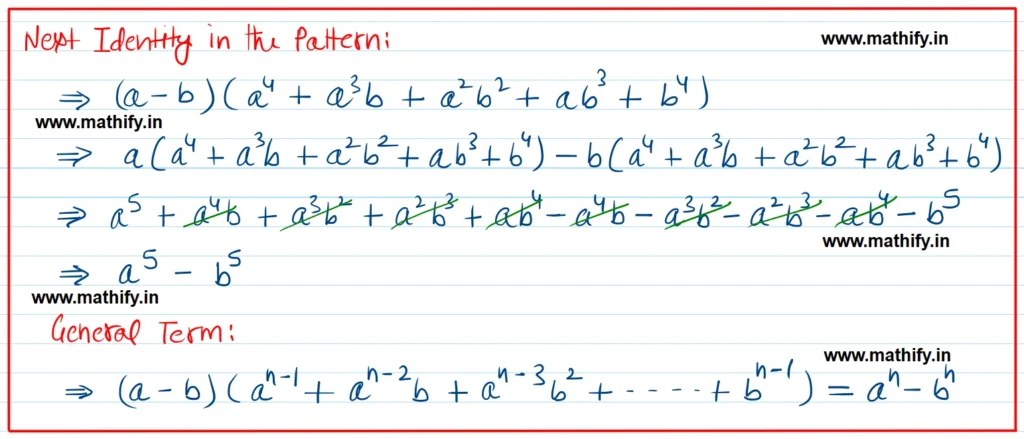 Next Identity in the Pattern:
www.mathify.in
⇒ (a - b)(a⁴ + a³b + a²b² + ab³ + b⁴)
www.mathify.in
⇒ a(a⁴ + a³b + a²b² + ab³ + b⁴) - b(a⁴ + a³b + a²b² + ab³ + b⁴)
⇒ a⁵ + a⁴b + a³b² + a²b³ + ab⁴ - a⁴b - a³b² - a²b³ - ab⁴ - b⁵
www.mathify.in
⇒ a⁵ - b⁵
www.mathify.in
General Term:
www.mathify.in
⇒ (a - b)(aⁿ⁻¹ + aⁿ⁻²b + aⁿ⁻³b² + ····· + bⁿ⁻¹) = aⁿ - bⁿ